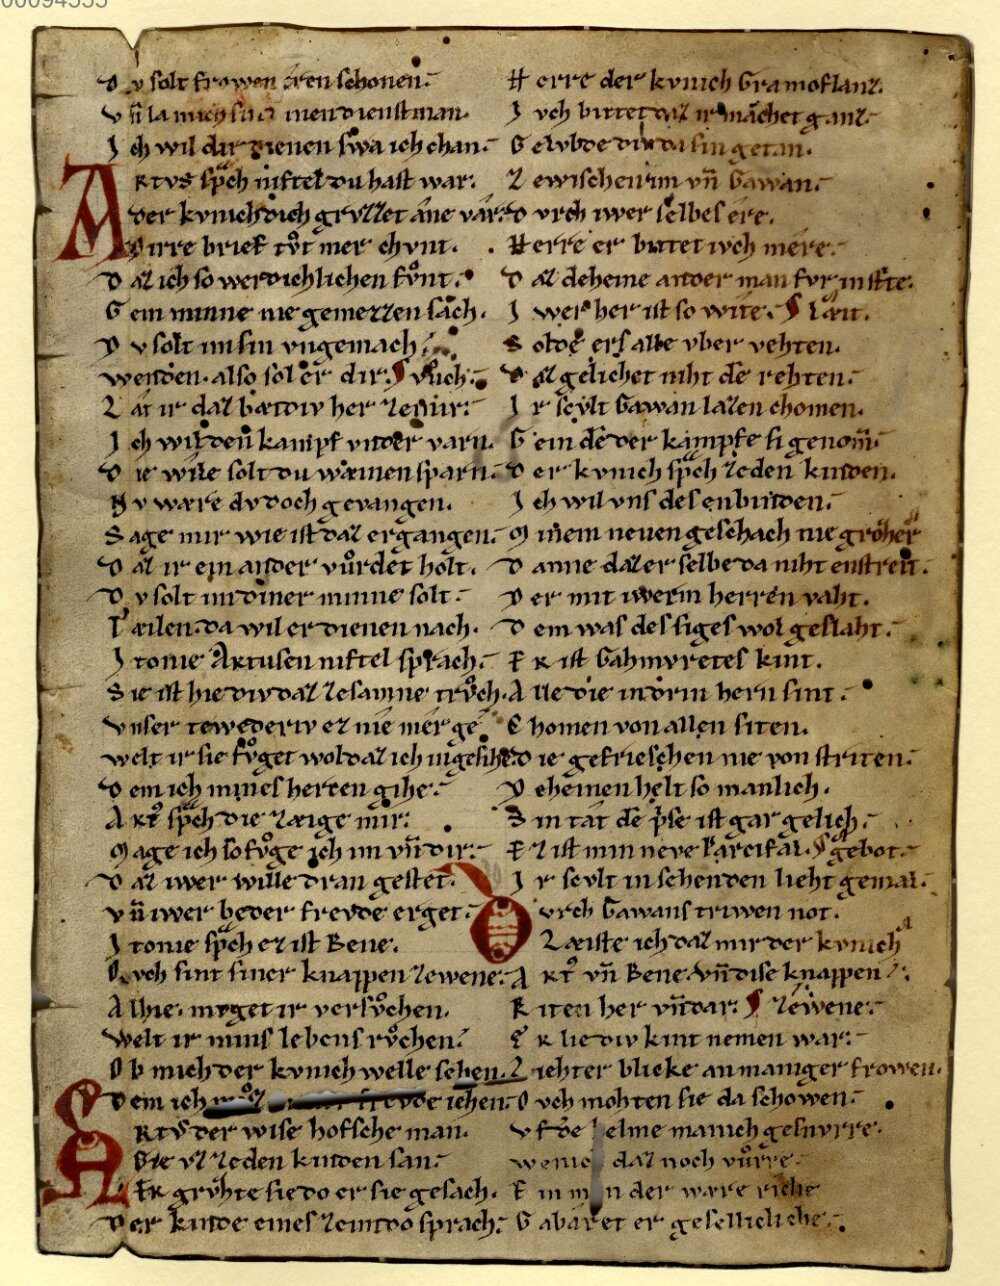 00094555
D v solt frowen eren schonen.
V n̄ la mich sin dienstman.
I ch wil dir dienen swa ich chan.
A RTVS sp̄ch niftel du hast war.
der kvnich dich grvzzet ane var.
D irre brief tv̊t mer chvnt.
D az ich so werdichlichen fv̊nt.
G ein minne nie gemezzen sach.
D v solt im sin vngemach
wenden. also sol er dir. vůch.
L at ir daz
I ch wil den kampf vnder varn.
D ie wile solt du wæinen sparn.
N v wære dv doch gevangen.
S age mir wie ist daz ergangen.
D az ir ein ander vůrdet holt.
D v solt im diner minne solt.
T æilen. da wil er dienen nach.
I tonie Artusen niftel sprach.
S ie ist hie div daz zesamne trv̊ch.
V nser tewederiv ez nie mer ge
welt ir sie fv̊get wol daz ich in gesihe.
D em ich mines hercen gihe.
A rt᷑ sp̄ch die zæige mir.
M age ich so fv̊ge ich im vn̄ dir.
D az iwer wille dran gestet.
V n̄ iwer beder frevde erget.
I tonie sp̄ch ez ist Bene.
O vch sint siner knappen zewene.
A lhie. mvget ir versv̊chen.
Welt ir mins lebens rv̊chen.
O b mich der kvnich welle sehen.
D em ich frevde iehen.
A RTV̄S der wise hofsche man.
Gie vz zeden kinden san.
ER grv̊hte sie do er sie gesach.
D er kinde eines zeim do sprach.
H erre der kvnich Gramoflanz.
I vch bittet daz ir machet ganz.
G elvbde div da sin getan.
Z ewischen im vn̄ Gawan.
D vrch iwer selbes ere.
H erre er bittet ivch mere.
D az deheine ander man fvr im ste.
I wer her ist so wite. lant.
S olde ers alle vber vehten.
D az gelichet niht de rehten.
I r scvlt Gawan lazen chomen.
G ein de der kampfe si genom̄.
D er kvnich sp̄ch zeden kinden.
I ch wil vns des enbinden.
M inem neuen geschach nie gröher
D anne daz er selbe da niht enstreit.
D er mit iwerm herren vaht.
D em was des siges wol geslaht.
E R ist Gahmvretes kint.
A lle die in drin hern sint.
C homen von allen siten.
D ie gefrieschen nie von striten.
D eheinen helt so manlich.
S in tat de p̄se ist gar gelich.
E z ist min neve Parcifal. gebot.
I r scvlt in sehen den lieht gemal.
D vrch Gawans triwen not.
Læiste ich daz mir der kvnich
A rt᷑ vn̄ Bene. vn̄ dise knappen
R iten her vn̄ dar. zewene.
E r lie div kint nemen war.
L iehter blicke an maniger frowen.
O vch mohten sie da schowen.
V f de helme manich gesnvrre.
wenich daz noch vůrre.
E in man der wære riche
G abaret er gesellicliche.